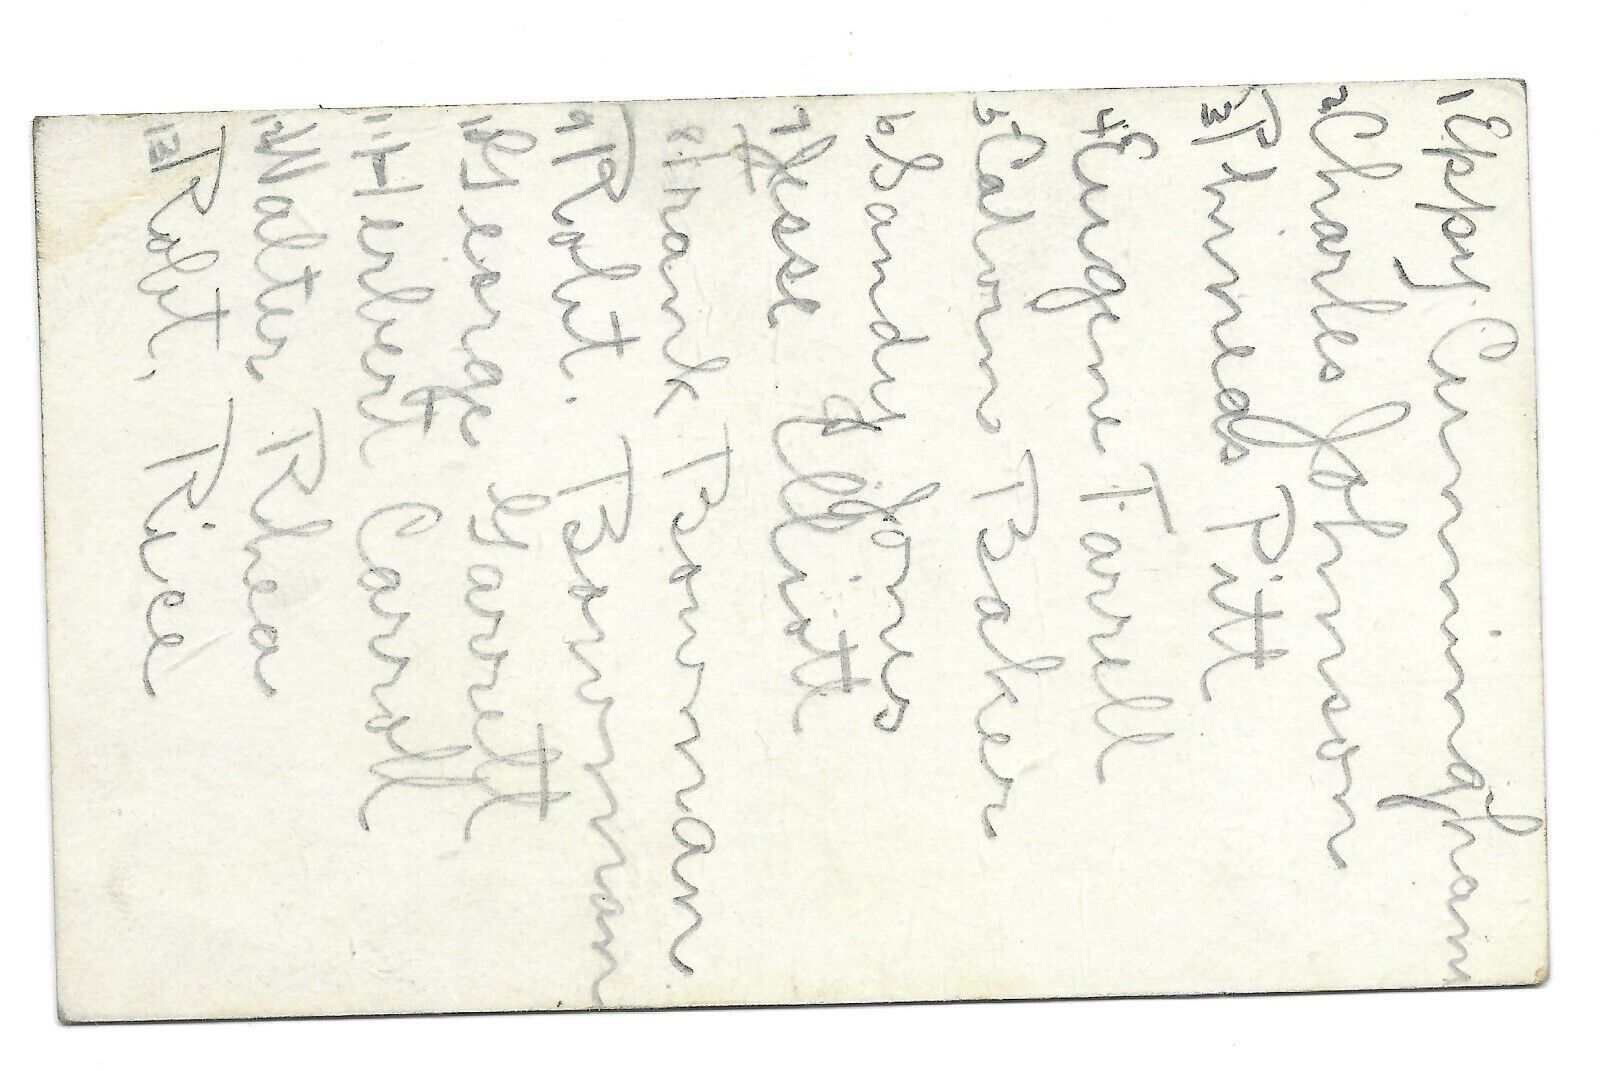 1 Eppy Cunningham
2 Charles Johnson
3 Phineds Pitt
4 Eugene Tarell
5 Calvin Baker
6 Sandy Jones
7 Jesse Elliott
8 Frank Bowman
9 Robt. Bowman
10 George Garrett
11 Herbert Carroll
12 Walter Rhea
13 Robt. Rice